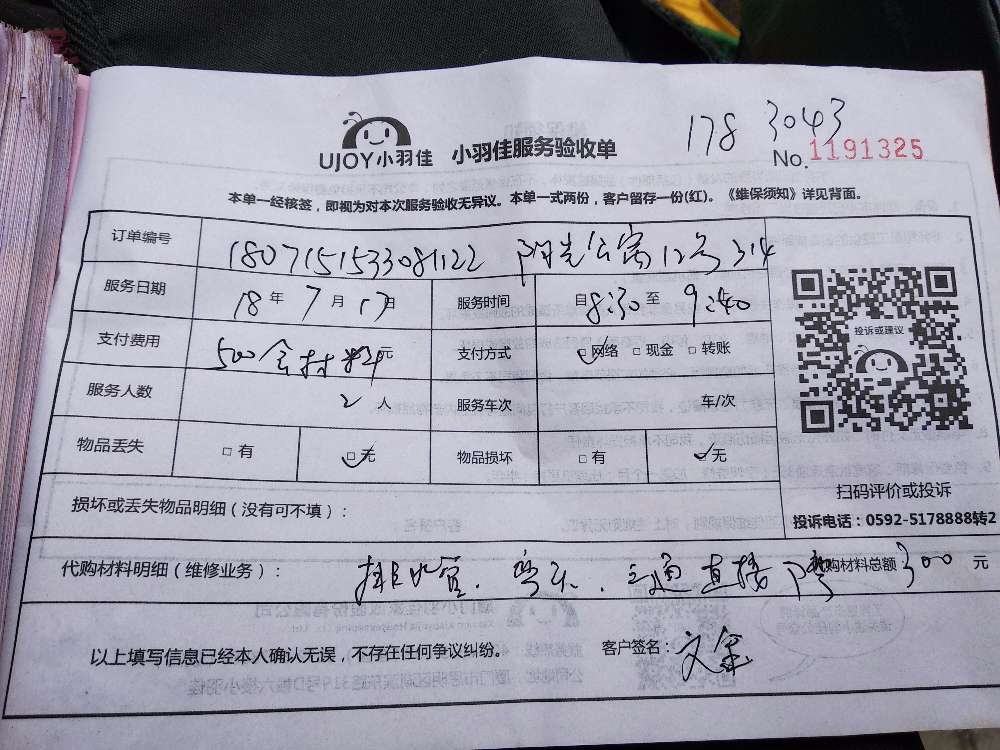 178 3043
UJOY小羽佳 小羽佳服务验收单
No.1191325
本单一经核签，即视为对本次服务验收无异议。本单一式两份，客户留存一份(红)。《维保须知》详见背面。
订单编号 1807151533081122 阳光公寓12号314
服务日期 18年7月17日 服务时间 自8:30至9:40
支付费用 500含材料元 支付方式 网络 □现金 □转账
投诉或建议
服务人数 2人 服务车次 车/次
物品丢失 □有 无 物品损坏 □有 无
扫码评价或投诉
损坏或丢失物品明细（没有可不填）：
投诉电话：0592-5178888转2
代购材料明细（维修业务）： 排水管、弯头、三通直接 购材料总额 300 元
以上填写信息已经本人确认无误，不存在任何争议纠纷。 客户签名：文金